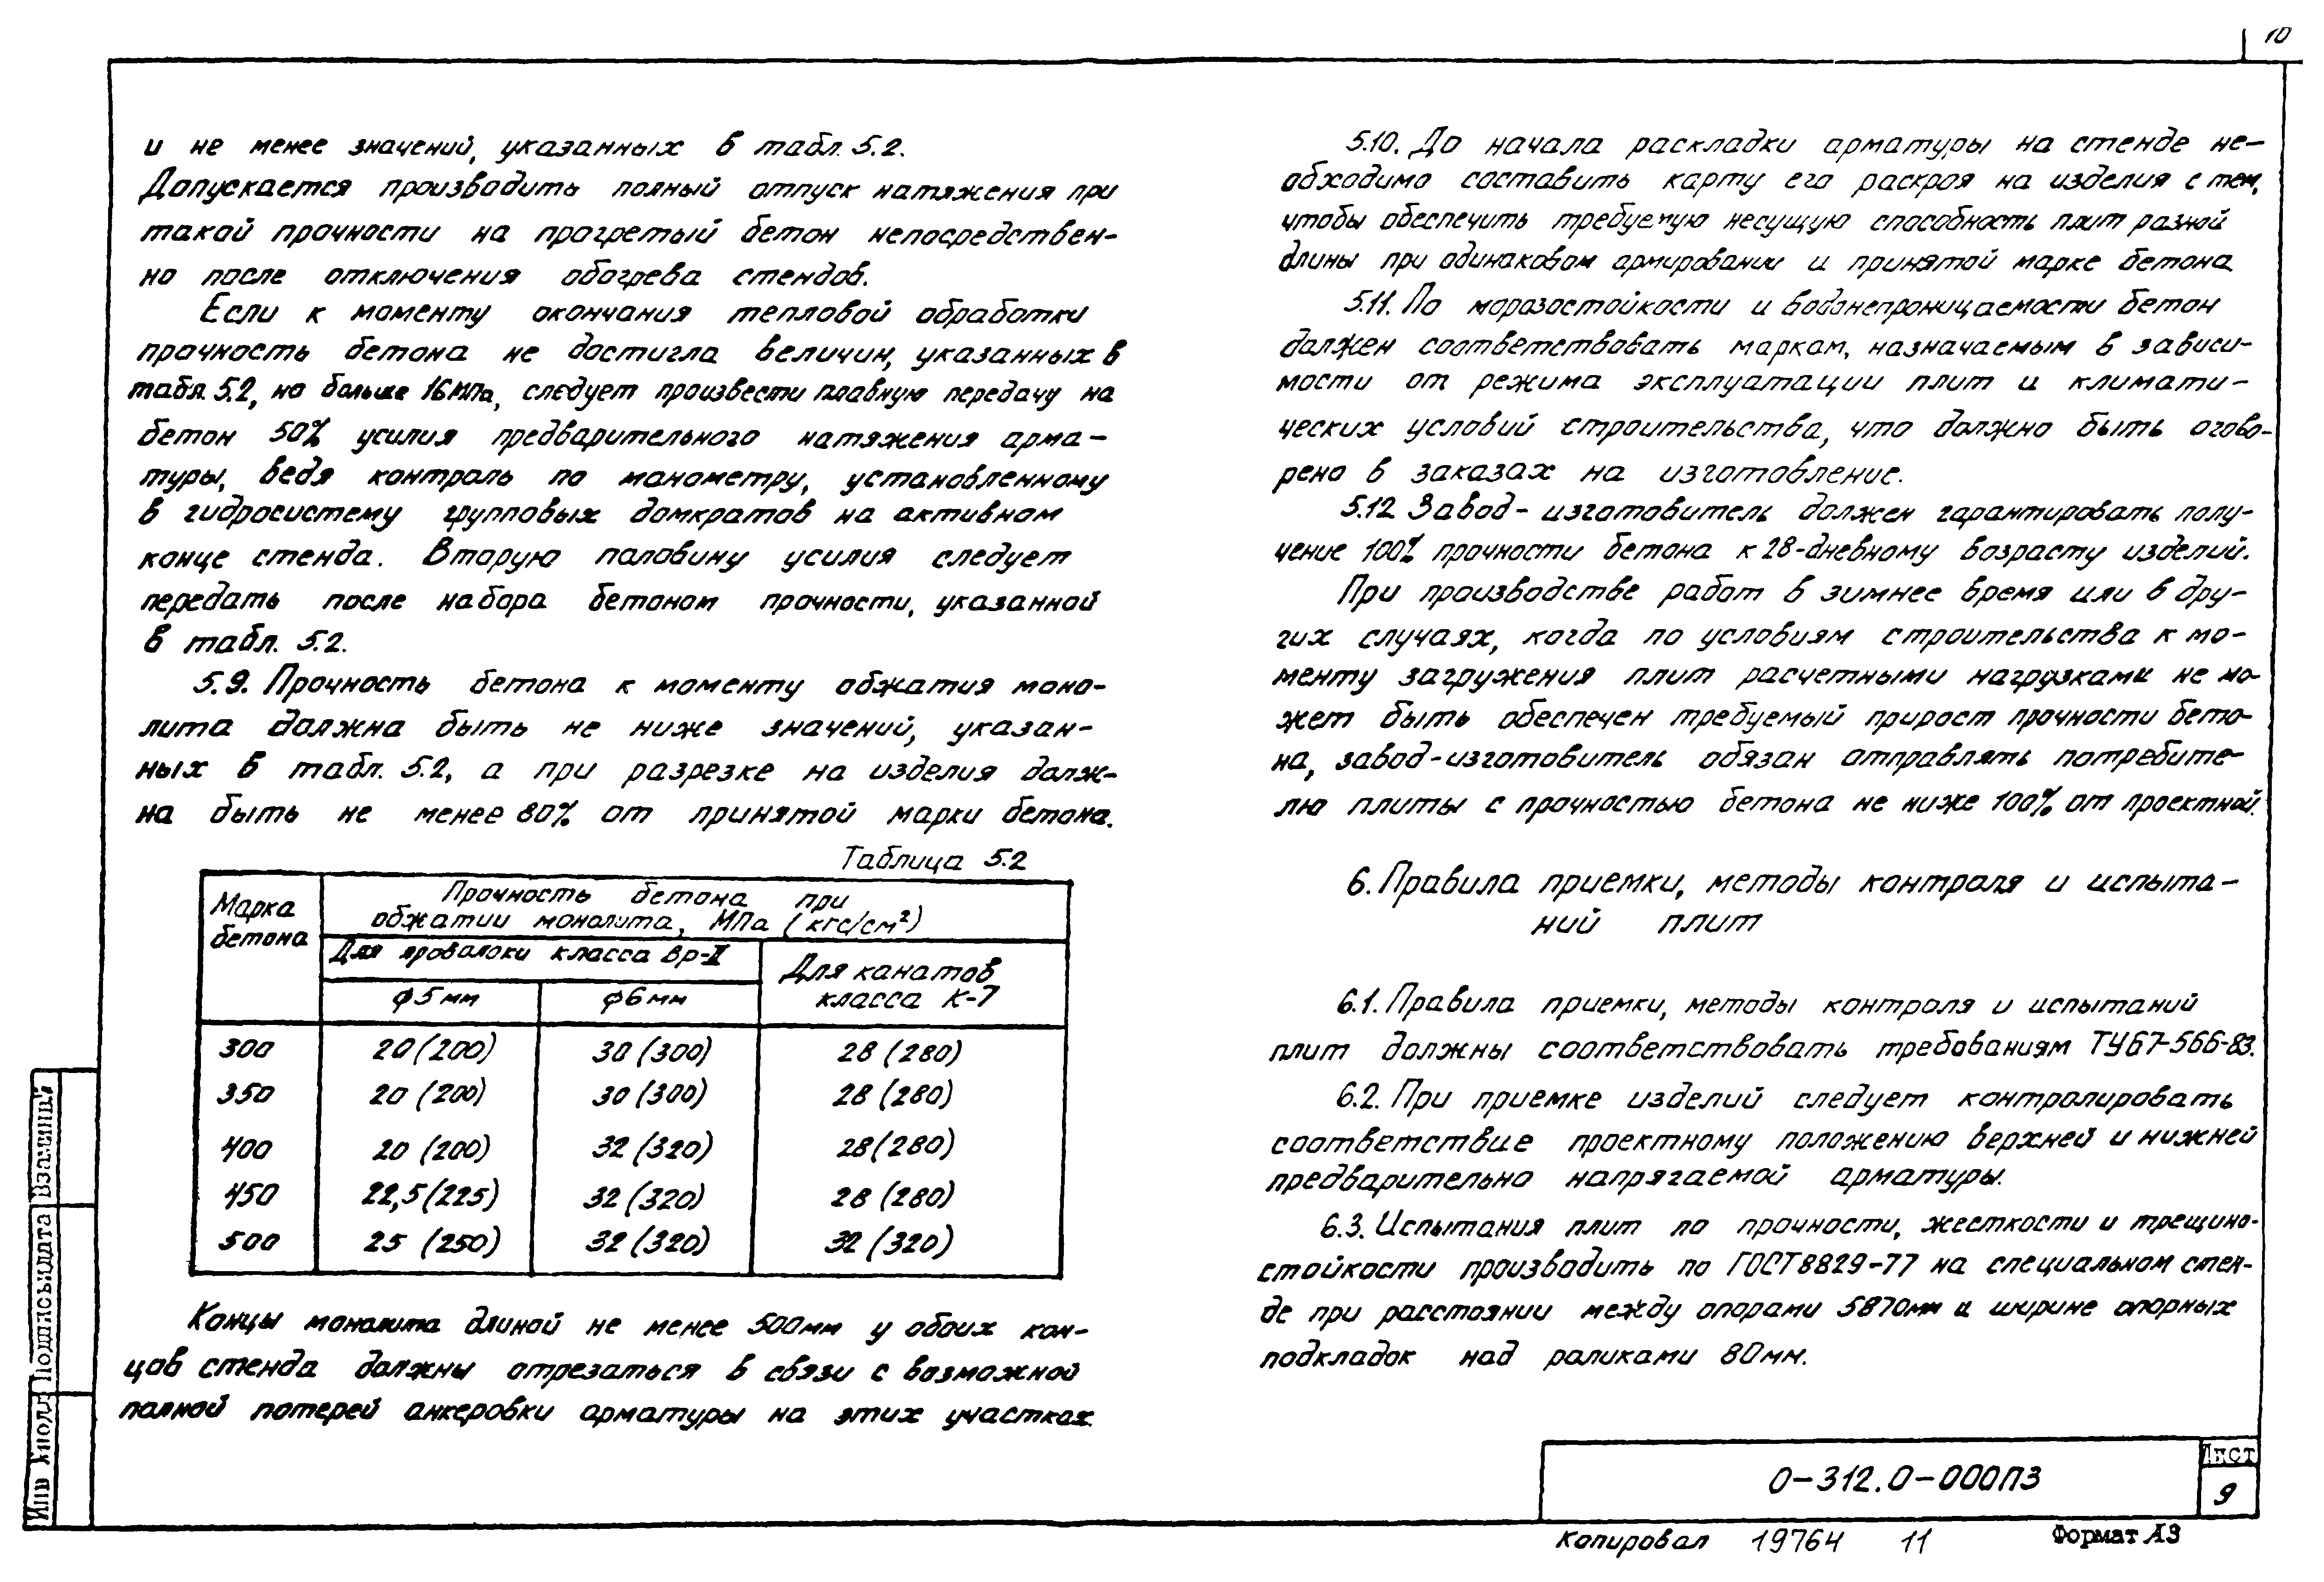 10
и не менее значений, указанных в табл. 5.2.
Допускается производить полный отпуск натяжения при
такой прочности на прогретый бетон непосредствен-
но после отключения обогрева стендов.
Если к моменту окончания тепловой обработки
прочность бетона не достигла величин, указанных в
табл. 5.2, но больше 16 МПа, следует произвести плавную передачу на
бетон 50% усилия предварительного натяжения арма-
туры, ведя контроль по манометру, установленному
в гидросистему групповых домкратов на активном
конце стенда. Вторую половину усилия следует
передать после набора бетоном прочности, указанной
в табл. 5.2.
5.9. Прочность бетона к моменту обжатия моно-
лита должна быть не ниже значений, указан-
ных в табл. 5.2, а при разрезке на изделия долж-
на быть не менее 80% от принятой марки бетона.
Таблица 5.2
Марка бетона
Прочность бетона при
обжатии монолита, МПа (кгс/см²)
Для проволоки класса Вр-II
Для канатов класса К-7
ф5мм ф6мм
300 20(200) 30(300) 28(280)
350 20(200) 30(300) 28(280)
400 20(200) 32(320) 28(280)
450 22,5(225) 32(320) 28(280)
500 25(250) 32(320) 32(320)
Концы монолита длиной не менее 500мм у обоих кон-
цов стенда должны отрезаться в связи с возможной
полной потерей анкеровки арматуры на этих участках.
5.10. До начала раскладки арматуры на стенде не-
обходимо составить карту его раскроя на изделия с тем,
чтобы обеспечить требуемую несущую способность плит разной
длины при одинаковом армировании и принятой марке бетона
5.11. По морозостойкости и водонепроницаемости бетон
должен соответствовать маркам, назначаемым в зависи-
мости от режима эксплуатации плит и климати-
ческих условий строительства, что должно быть огово-
рено в заказах на изготовление.
5.12 Завод-изготовитель должен гарантировать полу-
чение 100% прочности бетона к 28-дневному возрасту изделий.
При производстве работ в зимнее время или в дру-
гих случаях, когда по условиям строительства к мо-
менту загружения плит расчетными нагрузками не мо-
жет быть обеспечен требуемый прирост прочности бето-
на, завод-изготовитель обязан отправлять потребите-
лю плиты с прочностью бетона не ниже 100% от проектной.
6. Правила приемки, методы контроля и испыта-
ний плит
6.1. Правила приемки, методы контроля и испытаний
плит должны соответствовать требованиям ТУ67-566-83.
6.2. При приемке изделий следует контролировать
соответствие проектному положению верхней и нижней
предварительно напрягаемой арматуры.
6.3. Испытания плит по прочности, жесткости и трещино-
стойкости производить по ГОСТ 8829-77 на специальном стен-
де при расстоянии между опорами 5870мм и ширине опорных
подкладок над роликами 80мм.
0-312.0-000ПЗ
Лист
9
Копировал 19764 11 Формат А3
Инв №подл Подпись и дата Взам.инв.№